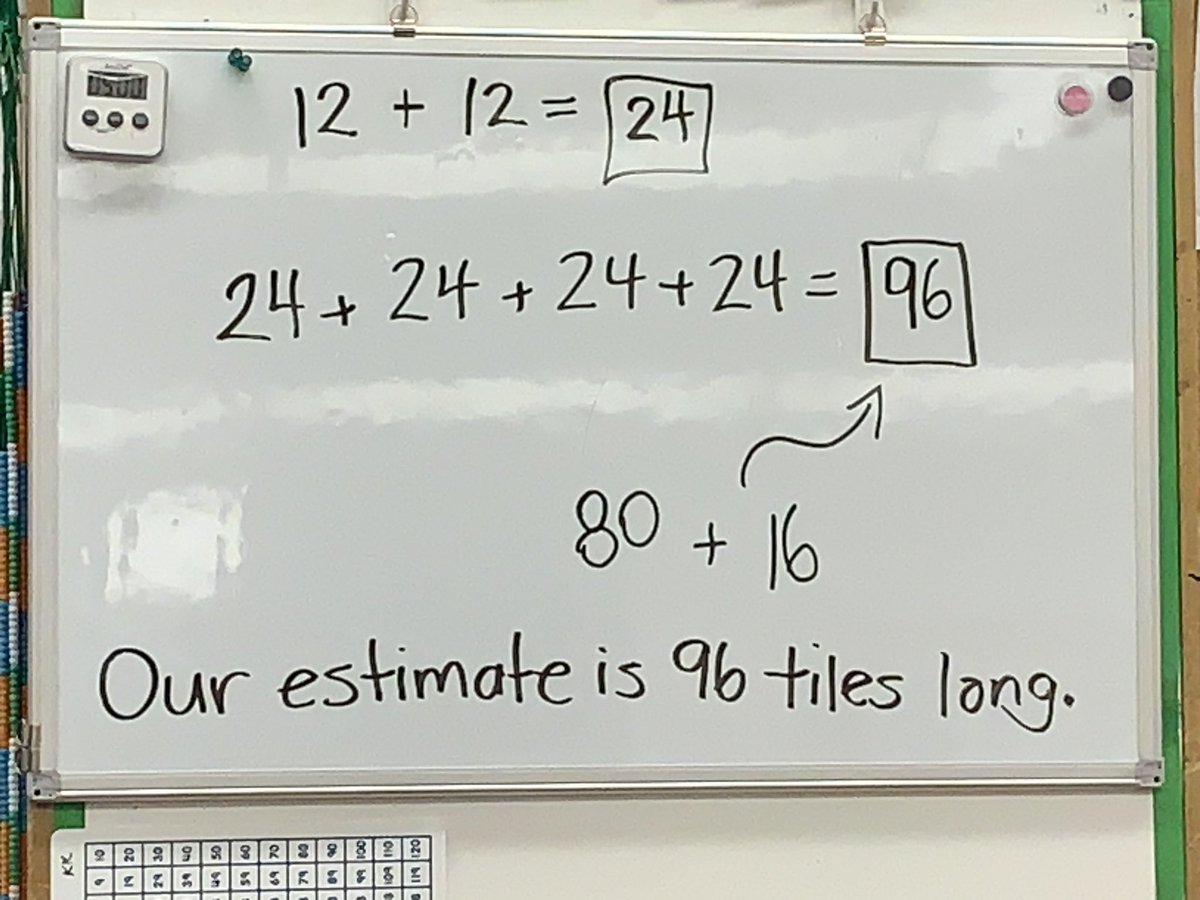 12 + 12 = 24
24 + 24 + 24 + 24 = 96
80 + 16
Our estimate is 96 tiles long.
KK
10 20 30 40 50 60 70 80 90 100 110 120
9 19 29 39 49 59 69 79 89 99 109 119